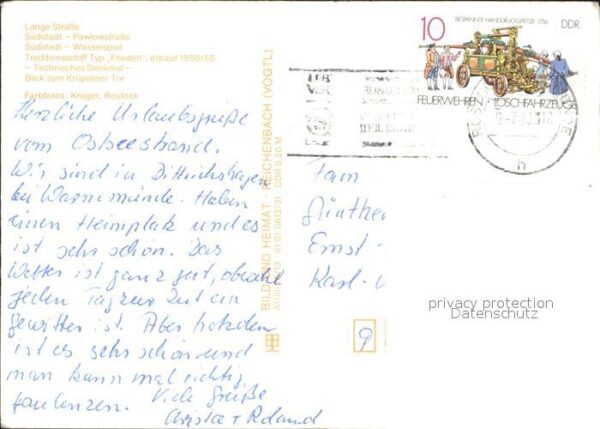 Lange Straße
Südstadt – Pawlowstraße
Südstadt – Wasserspiel
Traditionsschiff Typ „Frieden", erbaut 1956/58
– Technisches Denkmal –
Blick zum Kröpeliner Tor
Farbfotos: Krüger, Rostock
Herzliche Urlaubsgrüße
vom Ostseestrand.
Wir sind in Dittrichshagen
bei Warnemünde. Haben
einen Heimplatz und es
ist sehr schön. Das
Wetter ist ganz gut, obwohl
jeden Tag zur Zeit ein
Gewitter ist. Aber trotzdem
ist es sehr schön und
man kann mal richtig
faulenzen. Viele Grüße
Christa + Roland
BILD UND HEIMAT REICHENBACH (VOGTL)
01 01 0812/31 DDR 0,20 M
10
BESPANNTE HANDDRUCKSPRITZE 1756
DDR
FEUERWEHREN - LÖSCHFAHRZEUGE
h
Fam
Günther
Ernst
Karl-
9
privacy protection
Datenschutz